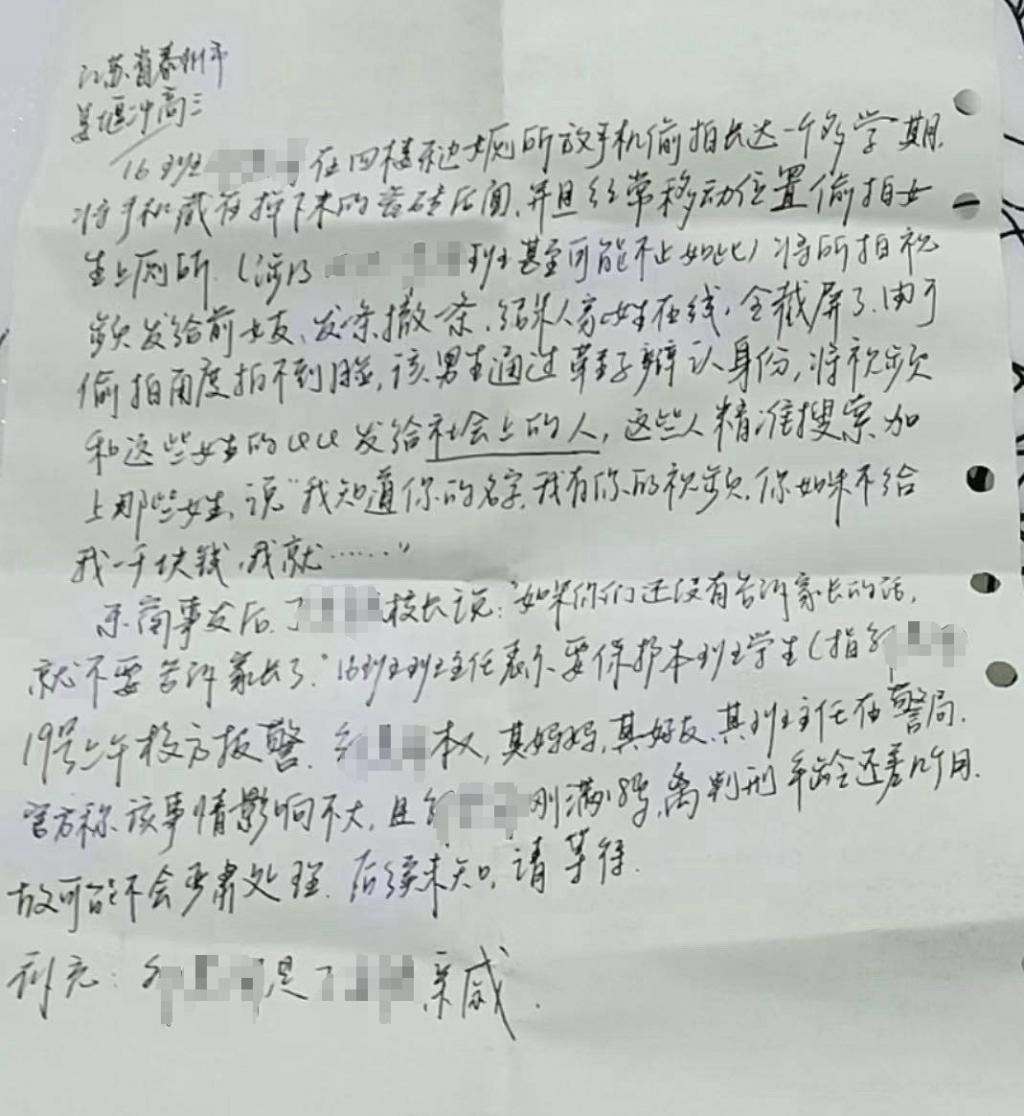 江苏省泰州市
姜堰中高三
16班 在四楼东边女厕所放手机偷拍长达一个多学期.
将手机藏在掉下来的瓷砖后面.并且经常移动位置偷拍女
生上厕所.(涉及 班甚至可能不止如此)将所拍视
频发给前女友、发一条撤一条.结果人家女生在线,全截屏了.由于
偷拍角度拍不到脸,该男生通过鞋子辨认身份,将视频
和这些女生的QQ发给社会上的人,这些人精准搜索加
上那些女生,说“我知道你的名字,我有你的视频.你如果不给
我一千块钱,我就……”
东窗事发后.丁 校长说:“如果你们还没有告诉家长的话,
就不要告诉家长了.”16班班主任表示要保护本班学生(指
19号上午校方报警. 本人,其妈妈,其好友,其班主任在警局.
官方称该事情影响不大,且 刚满 岁,离判刑年龄还差几个月.
故可能不会严肃处理.后续未知,请等待.
补充: 是丁 亲戚.